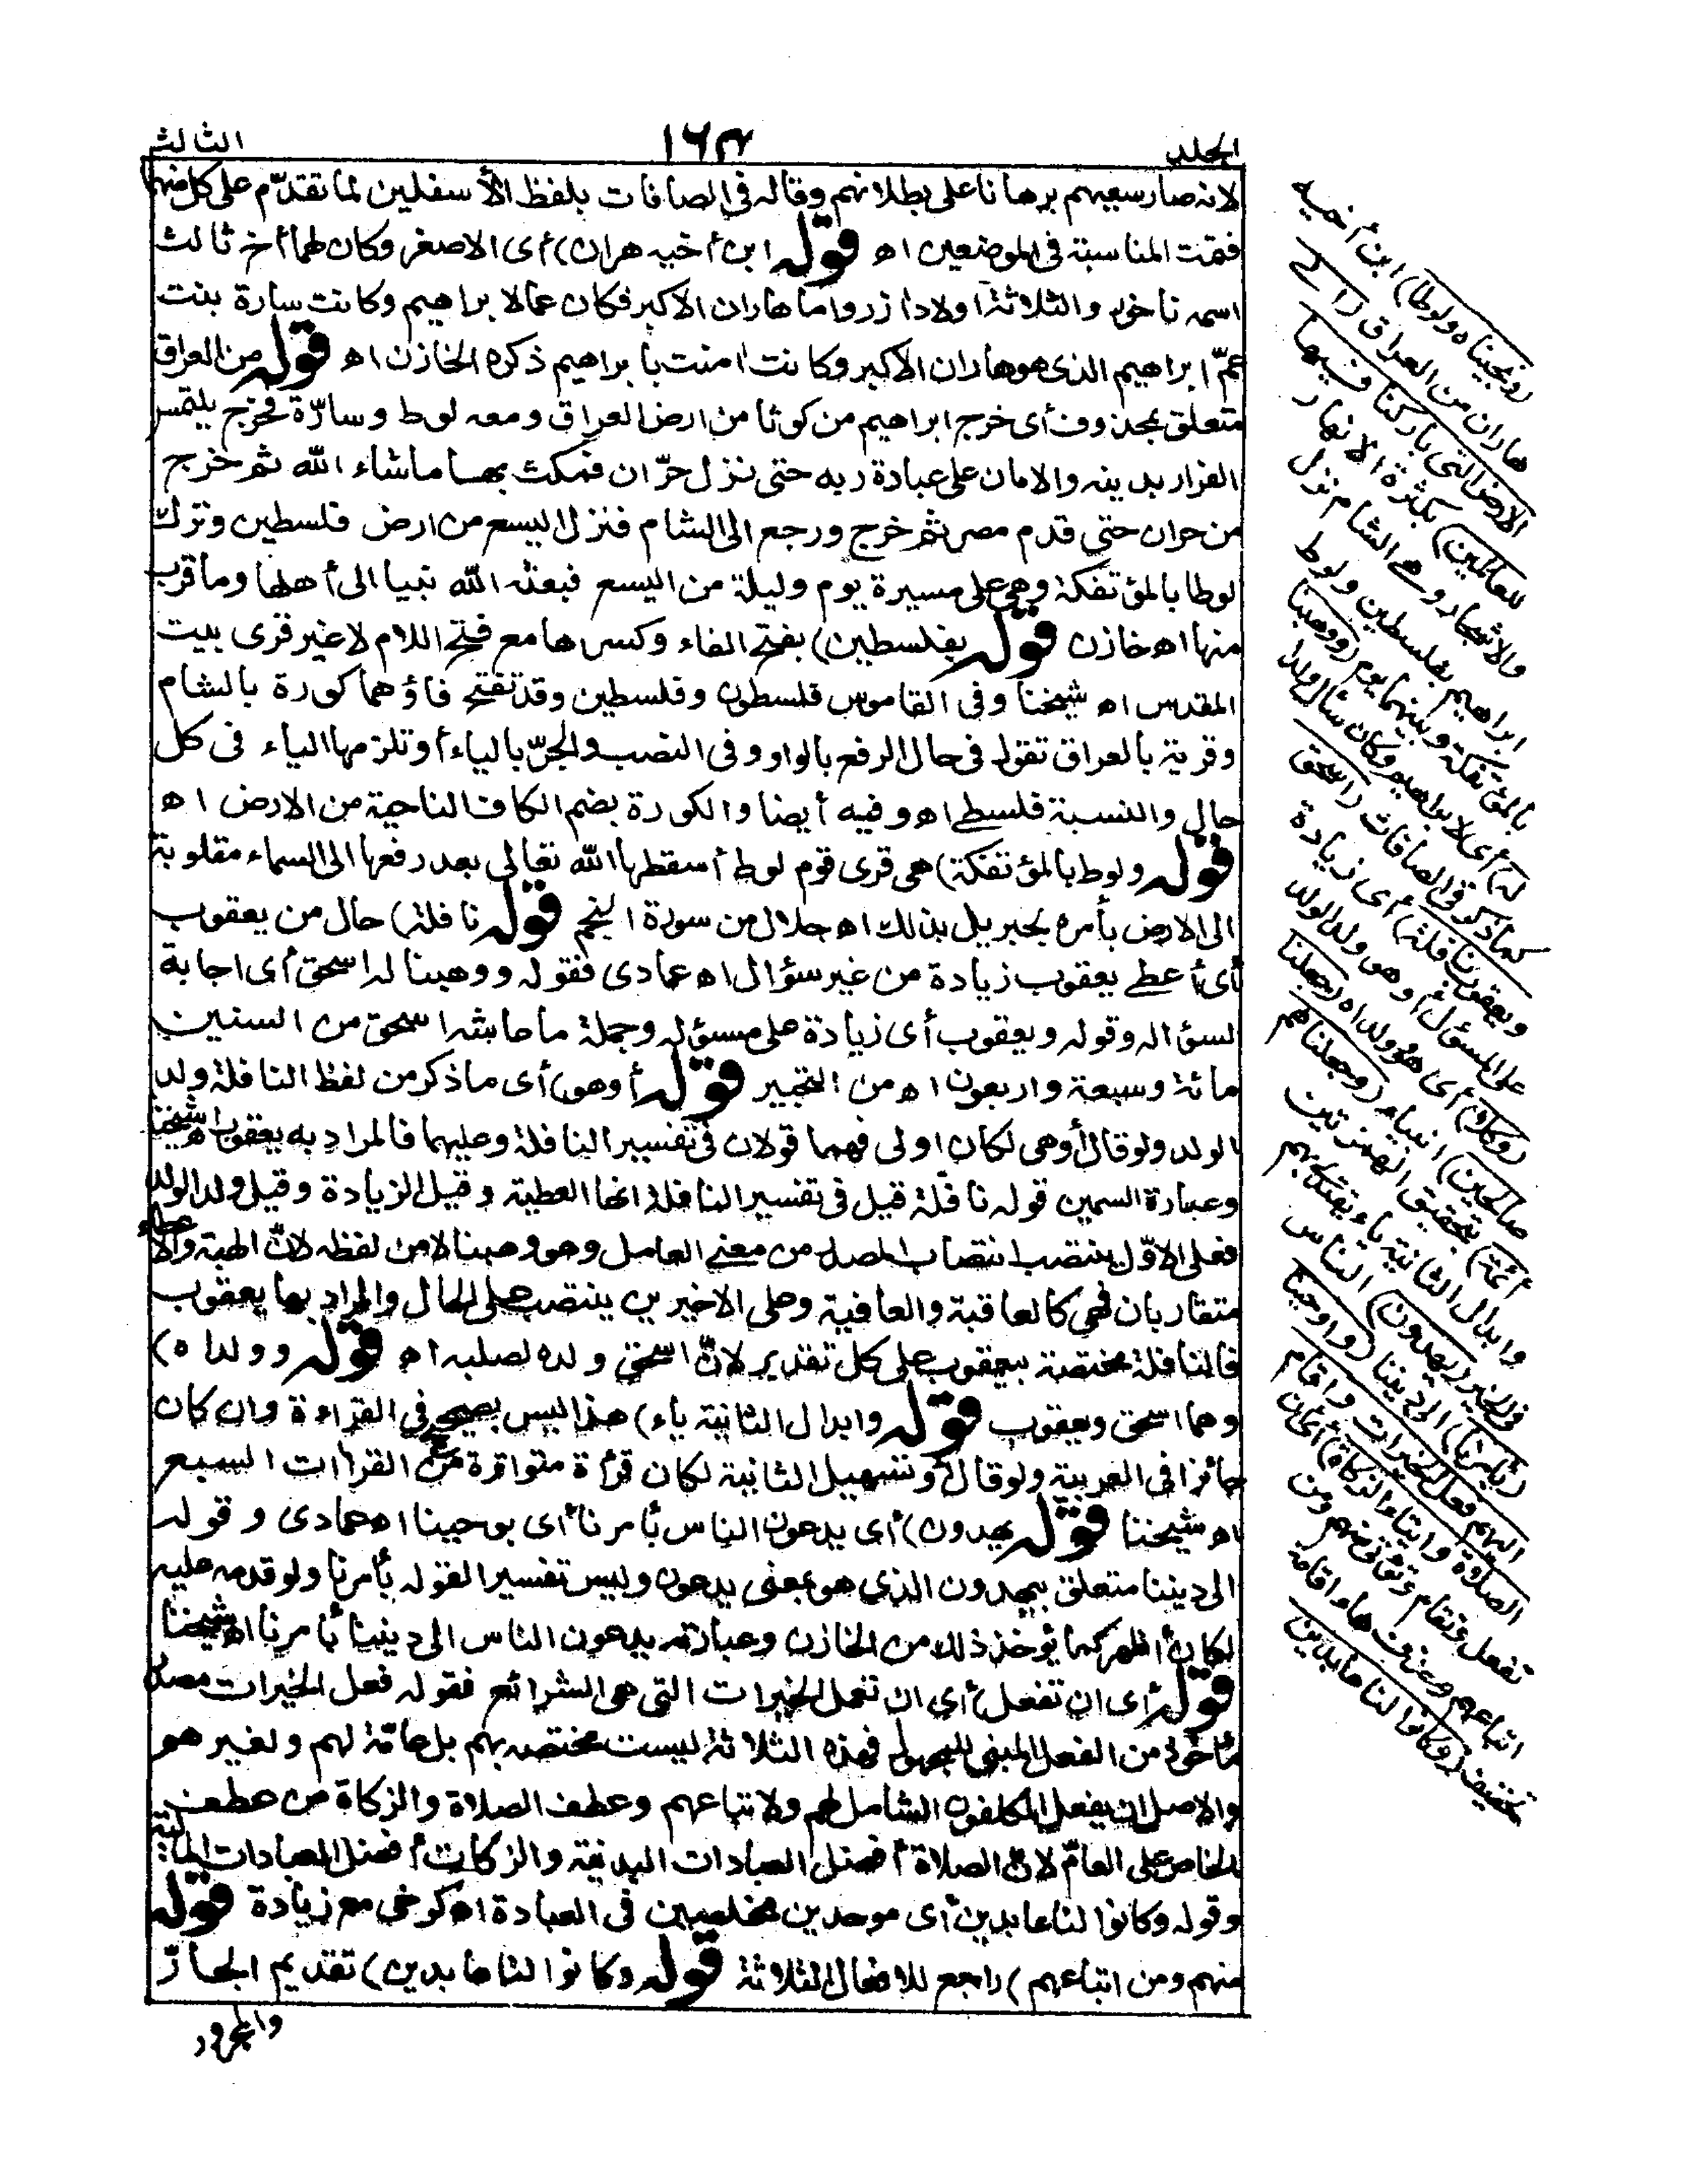 الجلد ١٦٣ الثالث
لانه صار سعيهم برهانا على بطلانهم وقاله فى الصافات بلفظ الأسفلين لما تقدّم على كل منهما
فتمت المناسبة فى الموضعين اه قوله ابن أخيه هران) أى الاصغر وكان لهما أخ ثالث
اسمه ناخور والثلاثة اولاد ازر واما هاران الاكبر فكان عما لابراهيم وكانت سارة بنت
عمّ ابراهيم الذى هو هاران الاكبر وكانت امنت بابراهيم ذكره الخازن اه قوله من العراق
متعلق بمحذوف أى خرج ابراهيم من كوثا من ارض العراق ومعه لوط وسارّة فخرج يلتمس
الفرار بدينه والامان على عبادة ربه حتى نزل حرّان فمكث بها ما شاء الله ثم خرج
من حران حتى قدم مصر ثم خرج ورجع الى الشام فنزل اليسع من ارض فلسطين وترك
لوطا بالمؤتفكة وهى على مسيرة يوم وليلة من اليسع فبعثه الله نبيا الى أهلها وما قرب
منها اه خازن قوله بفلسطين) بفتح الفاء وكسرها مع فتح اللام لا غير قرى بيت
المقدس اه شيخنا وفى القاموس فلسطون وفلسطين وقد تفتح فاؤهما كورة بالشام
وقرية بالعراق تقول فى حال الرفع بالواو وفى النصب والجرّ بالياء أو تلزمها الياء فى كل
حال والنسبة فلسطى اه وفيه أيضا والكورة بضم الكاف الناحية من الارض اه
قوله ولوط بالمؤتفكة) هى قرى قوم لوط أسقطها الله تعالى بعد رفعها الى السماء مقلوبة
الى الارض بأمره لجبريل بذلك اه جلال من سورة النجم قوله نافلة) حال من يعقوب
أى أعطى يعقوب زيادة من غير سؤال اه عمادى فقوله ووهبنا له اسحق أى اجابة
لسؤاله وقوله ويعقوب أى زيادة على مسؤله وجملة ما عاشه اسحق من السنين
مائة وسبعة واربعون اه من التحبير قوله أوهو) أى ما ذكر من لفظ النافلة ولد
الولد ولو قال أوهى لكان اولى فهما قولان فى تفسير النافلة وعليهما فالمراد به يعقوب اه شيخنا
وعبارة السمين قوله نافلة قيل فى تفسير النافلة انها العطية وقيل الزيادة وقيل ولد الولد
فعلى الاوّل ينتصب انتصاب المصدر من معنى العامل وهو وهبنا لا من لفظه لانّ الهبة والاعطاء
متقاربان فهى كالعاقبة والعافية وعلى الاخيرين ينتصب على الحال والمراد بها يعقوب
فالنافلة مختصة بيعقوب على كل تقدير لانّ اسحق ولده لصلبه اه قوله وولداه)
وهما اسحق ويعقوب قوله وابدال الثانية ياء) هذا ليس بصحيح فى القراءة وان كان
جائزا فى العربية ولو قال أو تسهيل الثانية لكان قرأة متواترة من القراات السبع
اه شيخنا قوله يهدون) أى يدعون الناس بأمرنا أى بوحينا اه عمادى وقوله
الى ديننا متعلق بيهدون الذى هو بمعنى يدعون وليس تفسيرا لقوله بأمرنا ولو قدمه عليه
لكان أظهر كما يؤخذ ذلك من الخازن وعبارته يدعون الناس الى ديننا بأمرنا اه شيخنا
قوله أى ان تفعل) أى ان تفعل الخيرات التى هى الشرائع فقوله فعل الخيرات مصدر
مأخوذ من الفعل المبنى للمجهول فهذه الثلاثة ليست مختصة بهم بل عامّة لهم ولغيرهم
والاصل ان يفعل المكلفون الشامل لهم ولاتباعهم وعطف الصلاة والزكاة من عطف
الخاص على العامّ لانّ الصلاة أفضل العبادات البدنية والزكات أفضل العبادات المالية
وقوله وكانوا لنا عابدين أى موحدين مخلصين فى العبادة اه كرخى مع زيادة قوله
منهم ومن اتباعهم) راجع للافعال الثلاثة قوله وكانوا لنا عابدين) تقديم الجارّ
والمجرور
(ونجيناه ولوطا) ابن أخيه
هاران من العراق (الى
الارض التى باركنا فيها
للعالمين) بكثرة الانهار
والاشجار وهى الشام نزل
ابراهيم بفلسطين ولوط
بالمؤتفكة وبينهما يوم (ووهبنا
له) أى لابراهيم وكان سأل ولدا
كما ذكر فى الصافات (اسحق
ويعقوب نافلة) أى زيادة
على المسؤل أو هو ولد الولد
(وكلا) أى هو وولداه (جعلنا
صالحين) انبياء (وجعلناهم
أئمة) بتحقيق الهمزتين
وابدال الثانية ياء يقتدى بهم
فى الخير (يهدون) الناس
(بأمرنا) الى ديننا (واوحينا
اليهم فعل الخيرات واقام
الصلاة وايتاء الزكاة) أى ان
تفعل وتقام وتؤتى منهم ومن
اتباعهم وحذف هاء اقامة
تخفيف (وكانوا لنا عابدين